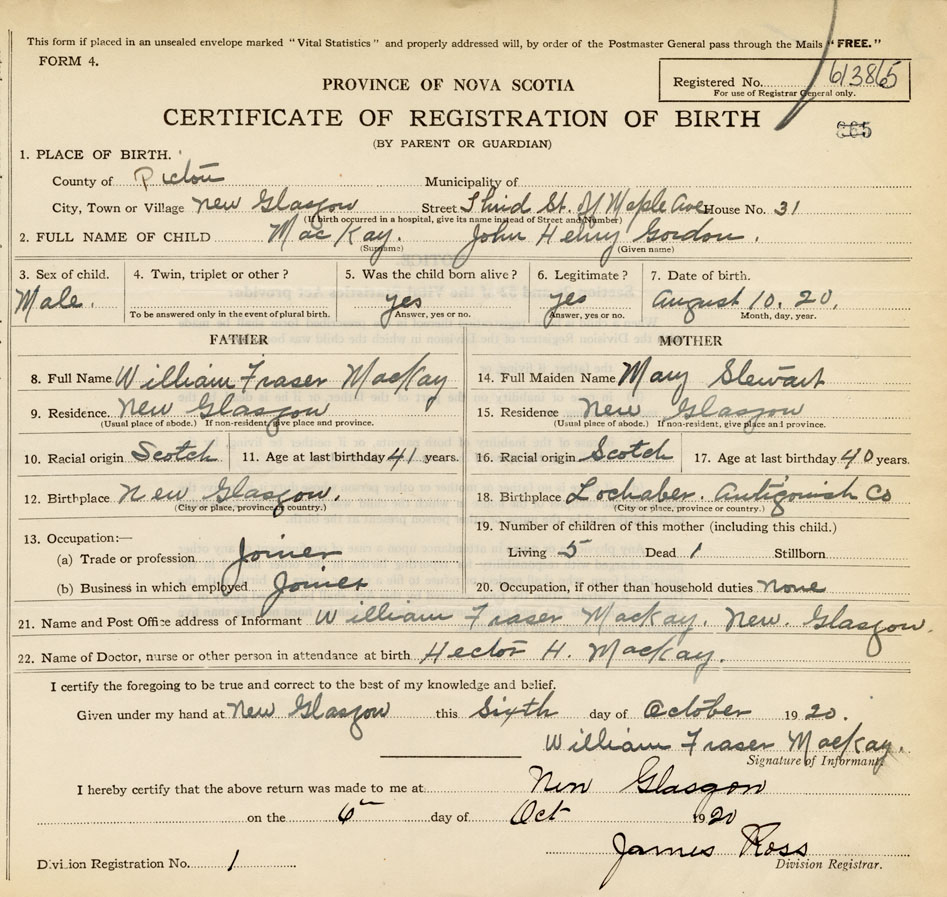 This form if placed in an unsealed envelope marked "Vital Statistics" and properly addressed will, by order of the Postmaster General pass through the Mails "FREE."
FORM 4.
PROVINCE OF NOVA SCOTIA
Registered No. 613865
For use of Registrar General only.
CERTIFICATE OF REGISTRATION OF BIRTH
865
(BY PARENT OR GUARDIAN)
1. PLACE OF BIRTH.
County of Pictou Municipality of
City, Town or Village New Glasgow Street Third St. Off Maple Ave House No. 31
(If birth occurred in a hospital, give its name instead of Street and Number)
2. FULL NAME OF CHILD MacKay. John Henry Gordon.
(Surname) (Given name)
3. Sex of child. 4. Twin, triplet or other? 5. Was the child born alive? 6. Legitimate? 7. Date of birth.
Male. yes yes August 10. 20.
To be answered only in the event of plural birth. Answer, yes or no. Answer, yes or no. Month, day, year.
FATHER MOTHER
8. Full Name William Fraser MacKay 14. Full Maiden Name Mary Stewart
9. Residence. New Glasgow 15. Residence New Glasgow
(Usual place of abode.) If non-resident, give place and province. (Usual place of abode.) If non-resident, give place and province.
10. Racial origin Scotch 11. Age at last birthday 41 years. 16. Racial origin Scotch 17. Age at last birthday 40 years.
12. Birthplace New Glasgow. 18. Birthplace Lochaber. Antigonish Co
(City or place, province or country.) (City or place, province or country.)
19. Number of children of this mother (including this child.)
13. Occupation:—
(a) Trade or profession Joiner Living 5 Dead 1 Stillborn
(b) Business in which employed Joiner 20. Occupation, if other than household duties None
21. Name and Post Office address of Informant William Fraser MacKay. New. Glasgow.
22. Name of Doctor, nurse or other person in attendance at birth Hector H. MacKay.
I certify the foregoing to be true and correct to the best of my knowledge and belief.
Given under my hand at New Glasgow this Sixth day of October 1920.
William Fraser MacKay.
Signature of Informant
I hereby certify that the above return was made to me at New Glasgow
on the 6th day of Oct 1920
James Ross
Division Registration No. 1 Division Registrar.